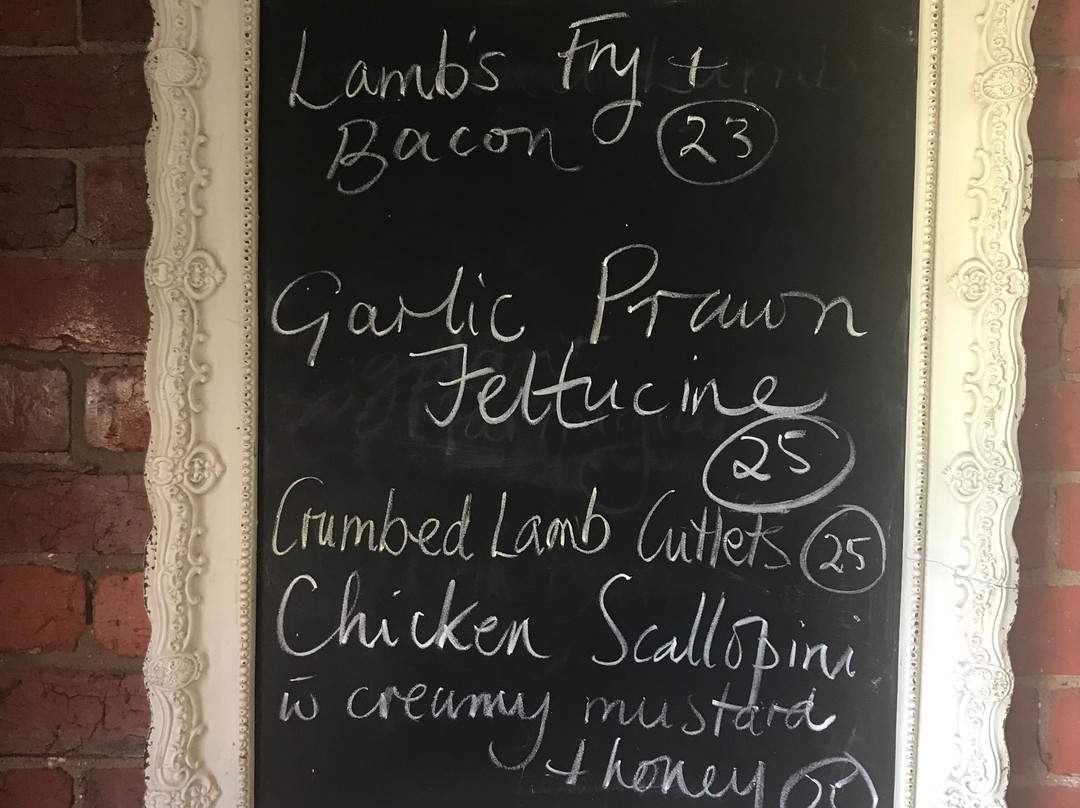 Lamb's Fry +
Bacon 23
Garlic Prawn
Fettucine
25
Crumbed Lamb Cuttets 25
Chicken Scallopini
w creamy mustard
+ honey